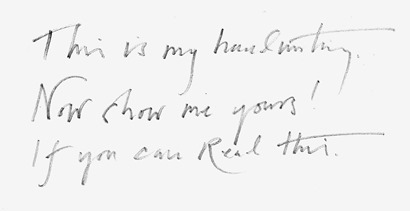 This is my handwriting.
Now show me yours!
If you can Read this.